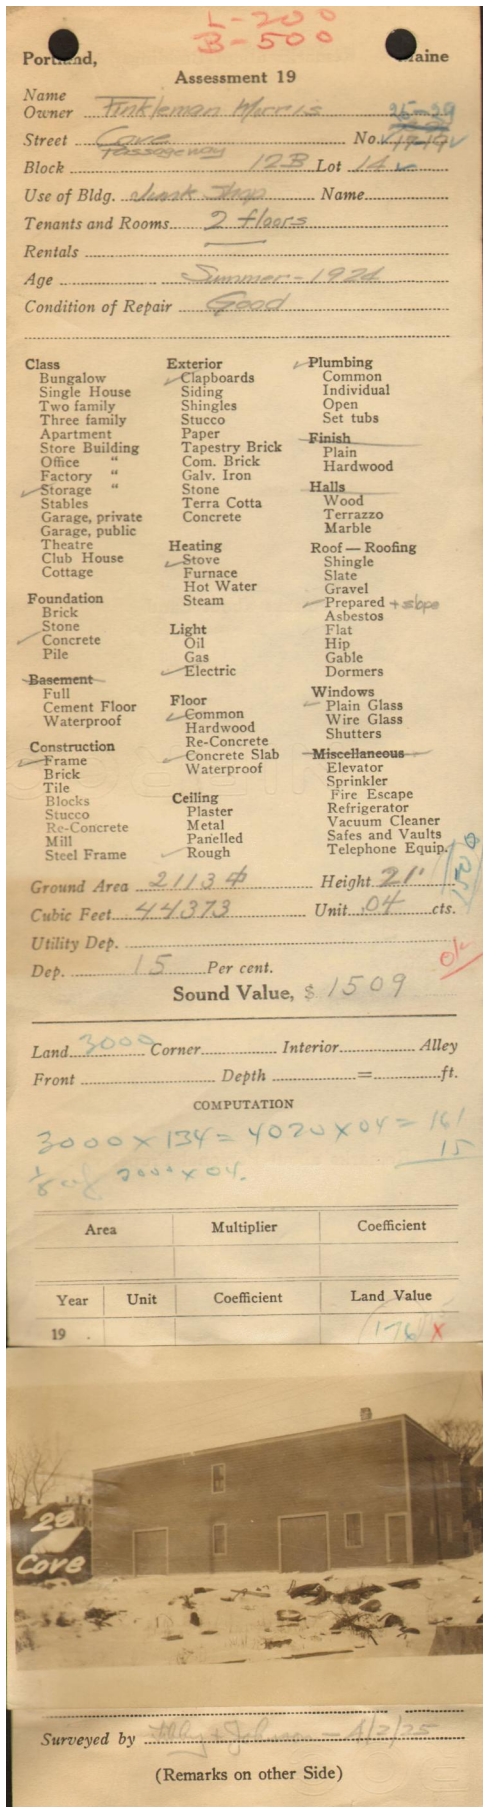 L-200
B-500
Portland, Maine
Assessment 19
Name
Owner Finkleman Morris 25-29
Street Cove No. 17-19
Passageway
Block 12B Lot 14
Use of Bldg. Junk Shop Name
Tenants and Rooms 2 floors
Rentals
Age Summer-1924
Condition of Repair Good
Class
Bungalow
Single House
Two family
Three family
Apartment
Store Building
Office "
Factory "
Storage "
Stables
Garage, private
Garage, public
Theatre
Club House
Cottage
Foundation
Brick
Stone
Concrete
Pile
Basement
Full
Cement Floor
Waterproof
Construction
Frame
Brick
Tile
Blocks
Stucco
Re-Concrete
Mill
Steel Frame
Exterior
Clapboards
Siding
Shingles
Stucco
Paper
Tapestry Brick
Com. Brick
Galv. Iron
Stone
Terra Cotta
Concrete
Heating
Stove
Furnace
Hot Water
Steam
Light
Oil
Gas
Electric
Floor
Common
Hardwood
Re-Concrete
Concrete Slab
Waterproof
Ceiling
Plaster
Metal
Panelled
Rough
Plumbing
Common
Individual
Open
Set tubs
Finish
Plain
Hardwood
Halls
Wood
Terrazzo
Marble
Roof — Roofing
Shingle
Slate
Gravel
Prepared + slope
Asbestos
Flat
Hip
Gable
Dormers
Windows
Plain Glass
Wire Glass
Shutters
Miscellaneous
Elevator
Sprinkler
Fire Escape
Refrigerator
Vacuum Cleaner
Safes and Vaults
Telephone Equip.
1500
Ground Area 2113 ф Height 21'
Cubic Feet 44373 Unit .04 cts.
Utility Dep.
O/c
Dep. 15 Per cent.
Sound Value, $ 1509
Land 3000 Corner Interior Alley
Front Depth = ft.
COMPUTATION
3000 x 134 = 4020 x 04 = 161
15
2000 x 04.
Area Multiplier Coefficient
Year Unit Coefficient Land Value
19 . 176 x
29
Cove
Surveyed by 4/2/25
(Remarks on other Side)